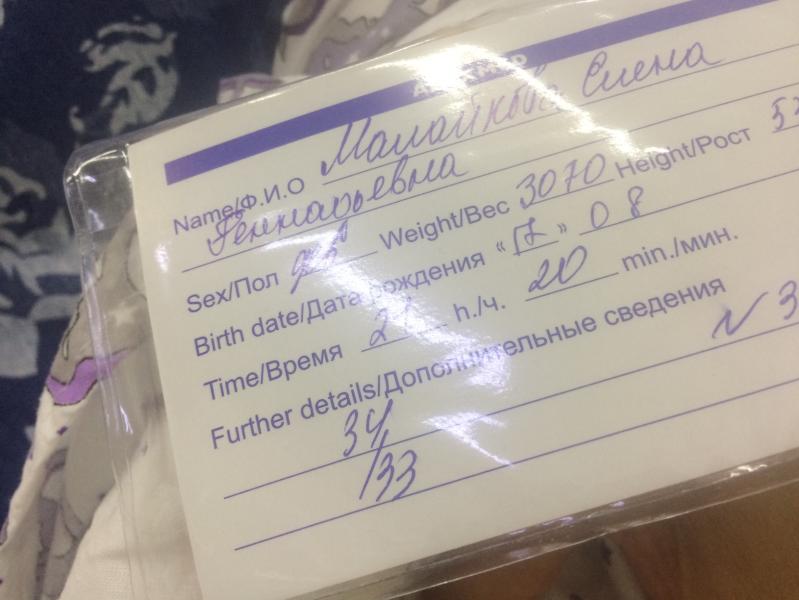 Name/Ф.И.О Малайкова Елена
Геннадьевна
Sex/Пол дев Weight/Вес 3070 Height/Рост
Birth date/Дата рождения « » 08
Time/Время h./ч. 20 min./мин.
Further details/Дополнительные сведения
N3
34/
/33